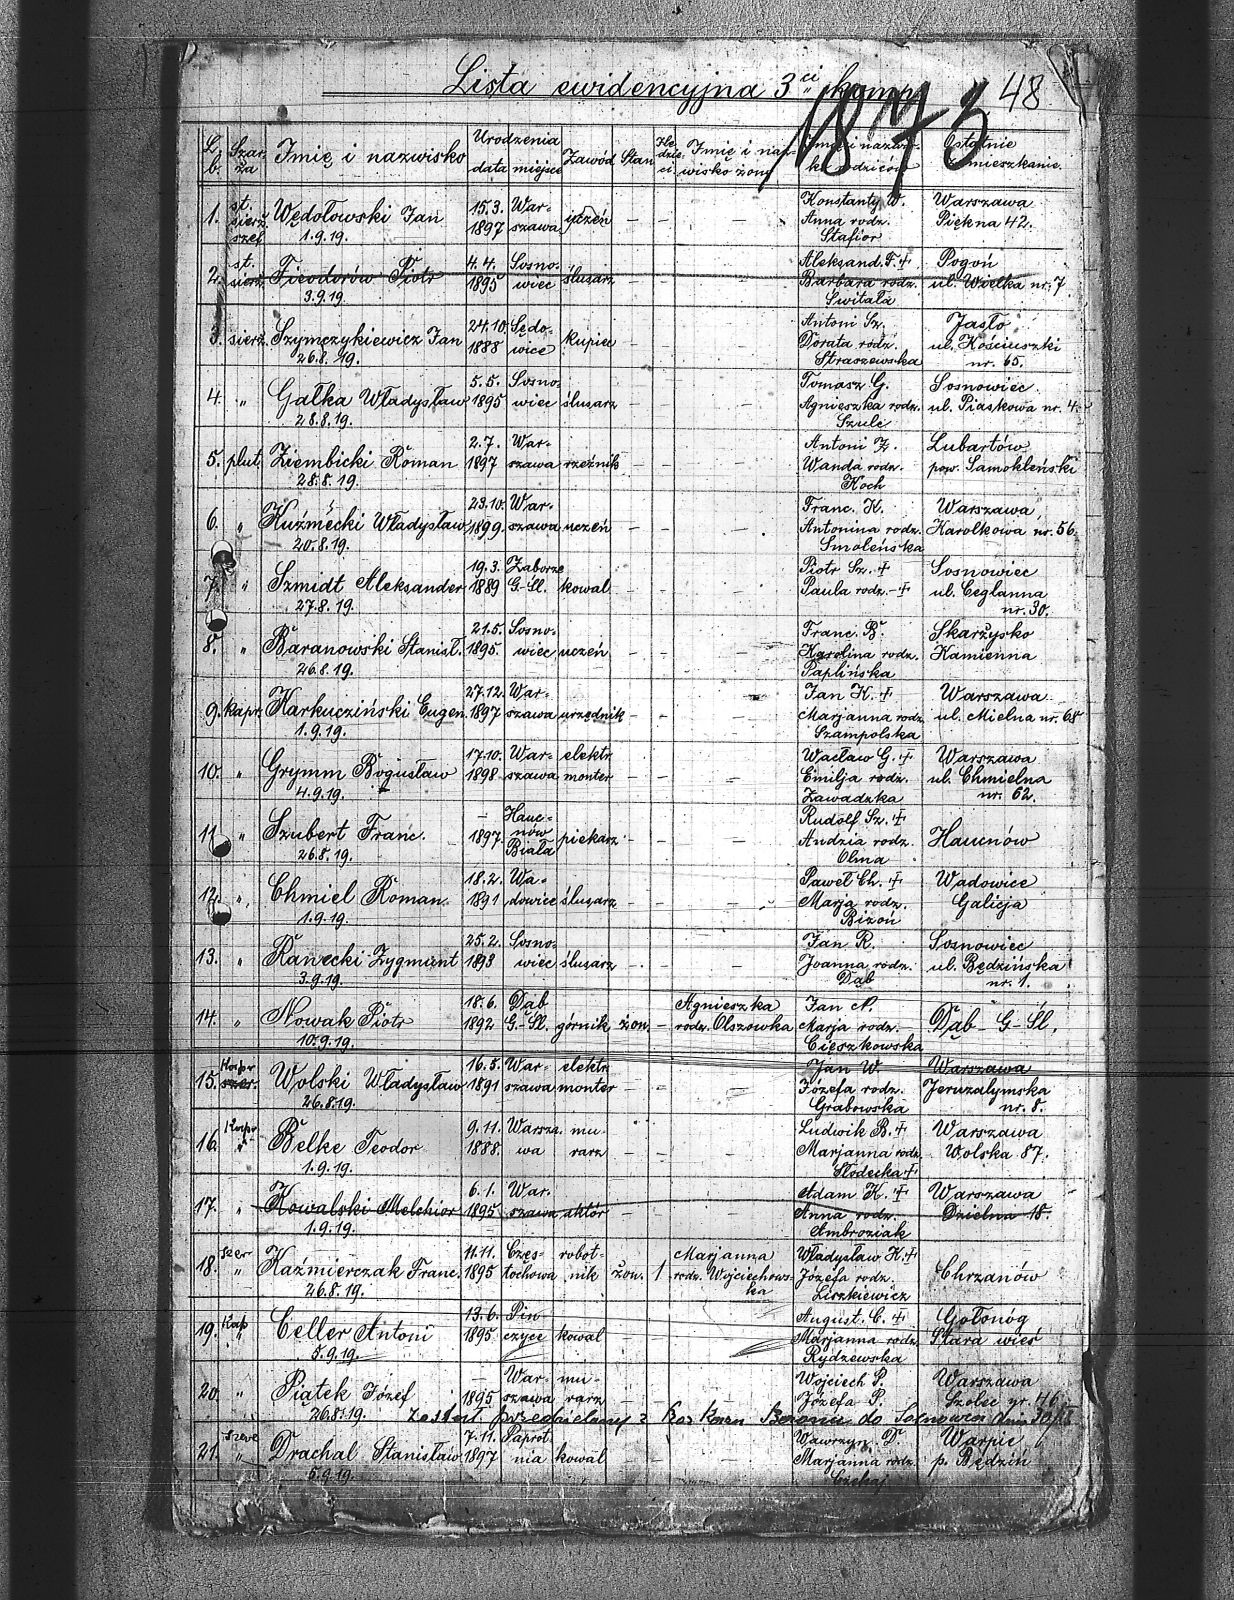 Lista ewidencyjna 3ci komp.
48
1873
L. b. Szarża Imię i nazwisko Urodzenia data miejsce Zawód Stan Ile dzieci Imię i nazwisko żony Imię i nazwisko rodziców Ostatnie zamieszkanie
st. 15.3. War- Konstanty W. Warszawa
1. sierż. Wędołowski Jan 1897 szawa uczeń - - - Anna rodz. Piękna 42.
szef 1.9.19. Stafior
st. 4.4. Sosno- Aleksand. F. + Pogoń
2. sierż. Fieodorów Piotr 1895 wiec ślusarz - - - Barbara rodz. ul. Wielka nr. 7
3.9.19. Świtała
24.10. Sędo- Antoni Sz. Jasło
3. sierż. Szymczykiewicz Jan 1888 wice kupiec - - - Dorata rodz. ul. Kościuszki
26.8.19. Straszewska nr. 65.
5.5. Sosno- Tomasz G. Sosnowiec
4. " Gałka Władysław 1895 wiec ślusarz - - - Agnieszka rodz. ul. Piaskowa nr. 4
28.8.19. Szulc
2.7. War- Antoni Z. Lubartów
5. plut. Ziembicki Roman 1897 szawa rzeźnik - - - Wanda rodz. pow. Samokleński
28.8.19. Koch
23.10. War- Franc. K. Warszawa
6. " Kuźmecki Władysław 1899 szawa uczeń - - - Antonina rodz. Karolkowa nr. 56
20.8.19. Smoleńska
19.3. Zaborze Piotr Sz. + Sosnowiec
7. " Szmidt Aleksander 1889 G-Śl. kowal - - - Paula rodz. - + ul. Ceglanna
27.8.19. nr. 30.
21.5. Sosno- Franc. B. Skarżysko
8. " Baranowski Stanisł. 1895 wiec uczeń - - - Karolina rodz. Kamienna
26.8.19. Paplińska
27.12. War- Jan K. + Warszawa
9. kapr. Karkuciński Eugen. 1897 szawa urzędnik - - - Marjanna rodz. ul. Mielna nr. 68
1.9.19. Szampolska
17.10. War- elektr. Wacław G. + Warszawa
10. " Grymm Bogusław 1898 szawa monter - - - Emilja rodz. ul. Chmielna
4.9.19. Zawadzka nr. 62.
- Hauc- Rudolf Sz. +
11. " Szubert Franc. 1897 nów Biała piekarz - - - Andzia rodz. Haucnów
26.8.19. Olma
18.2. Wa- Paweł Ch. + Wadowice
12. " Chmiel Roman. 1891 dowice ślusarz - - - Marja rodz. Galicja
1.9.19. Bizoń
25.2. Sosno- Jan R. Sosnowiec
13. " Ranecki Zygmunt 1893 wiec ślusarz - - - Joanna rodz. ul. Będzińska
3.9.19. Dąb nr. 1.
18.6. Dąb Agnieszka Jan N.
14. " Nowak Piotr 1892 G-Śl. górnik żon. - rodz. Olszówka Marja rodz. Dąb - G-Śl.
10.9.19. Cięszkowska
Kapr 16.5. War- elektr. Jan W. Warszawa
15. szer. Wolski Władysław 1891 szawa monter - - - Józefa rodz. Jeruzalymska
26.8.19. Grabowska nr. 8.
Kapr 9.11. Warsza- mu- Ludwik B. + Warszawa
16. " Belke Teodor 1888. wa rarz - - - Marjanna rodz. Wolska 87.
1.9.19. Słodecka +
6.1. War- Adam K. + Warszawa
17. " Kowalski Melchior 1895 szawa aktór - - - Anna rodz. Dzielna 18.
1.9.19. Ambroziak
szer 11.11. Częs- robot- Marjanna Władysław K. +
18. " Kaźmierczak Franc. 1895 tochowa nik żon. 1 rodz. Wojciechows- Józefa rodz. Chrzanów
26.8.19. ka Liszkiewicz
Kap 13.6. Pin- August. C. + Gołonóg
19. " Celler Antoni 1895 czyce kowal - - - Marjanna rodz. Stara wieś
5.9.19. Rydzewska
- War- mu- Wojciech P. Warszawa
20. " Piątek Józef 1895 szawa rarz - - - Józefa P. Szolec nr. 46.
26.8.19. Został przedzielany z do Sosnowca dnia
szere 7.11. Paprot- Wawrzyn D. Warpie
21. " Drachal Stanisław 1897 nia kowal - - - Marjanna rodz. p. Będzin
5.9.19.